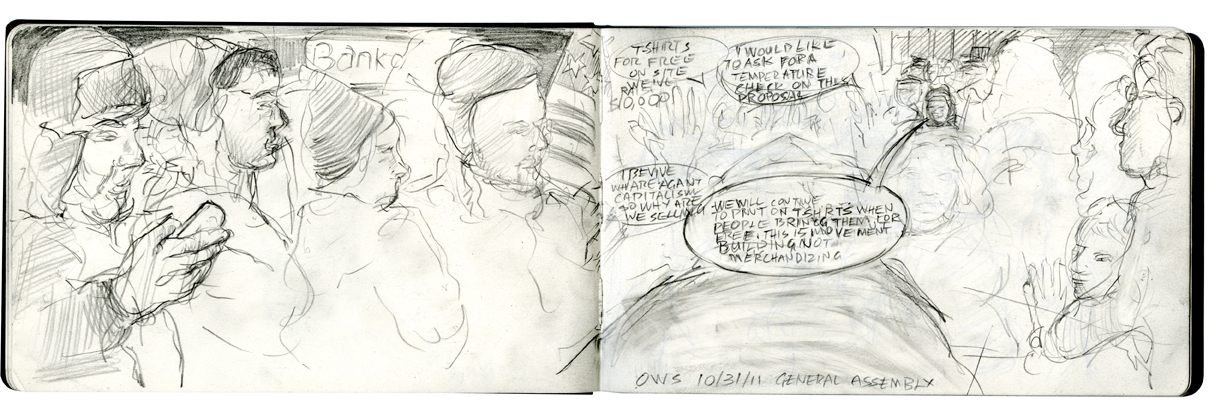 Bank
T-SHIRTS
FOR FREE
ON SITE
$10,000
I WOULD LIKE
TO ASK FOR A
TEMPERATURE
CHECK ON THIS
PROPOSAL
WH ARE AGANT
CAPITALISM
SO WHY ARE
WE SELLING
WE WILL CONTINUE
TO PRINT ON T SHIRTS WHEN
PEOPLE BRING THEM FOR
FREE. THIS IS MOVEMENT
BUILDING NOT
MERCHANDIZING
OWS 10/31/11 GENERAL ASSEMBLY